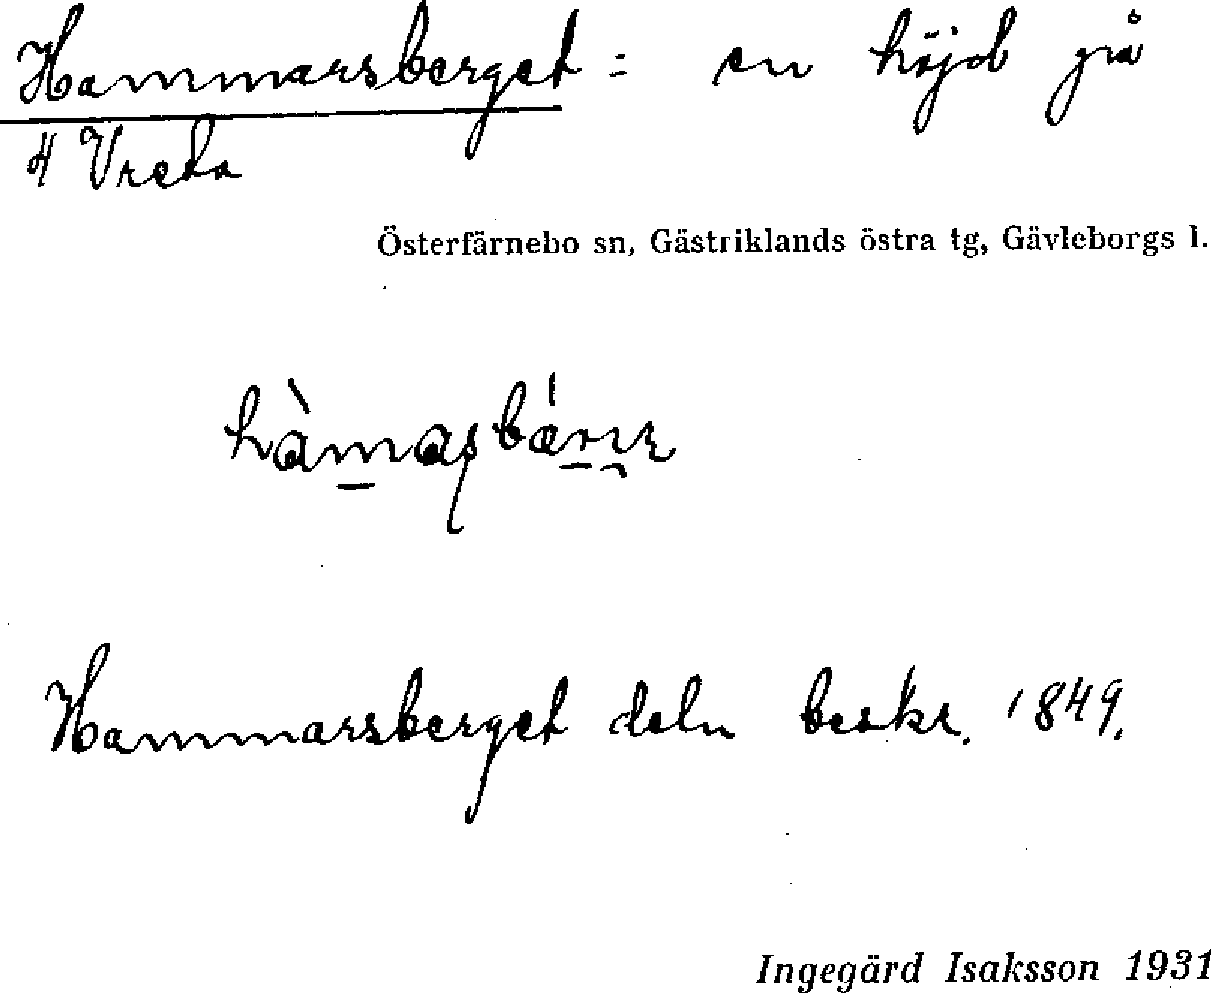 Hammarsberget = en höjd på
4 Vreta
Österfärnebo sn, Gästriklands östra tg, Gävleborgs l.
Hammarsberget deln beskr. 1849.
Ingegärd Isaksson 1931